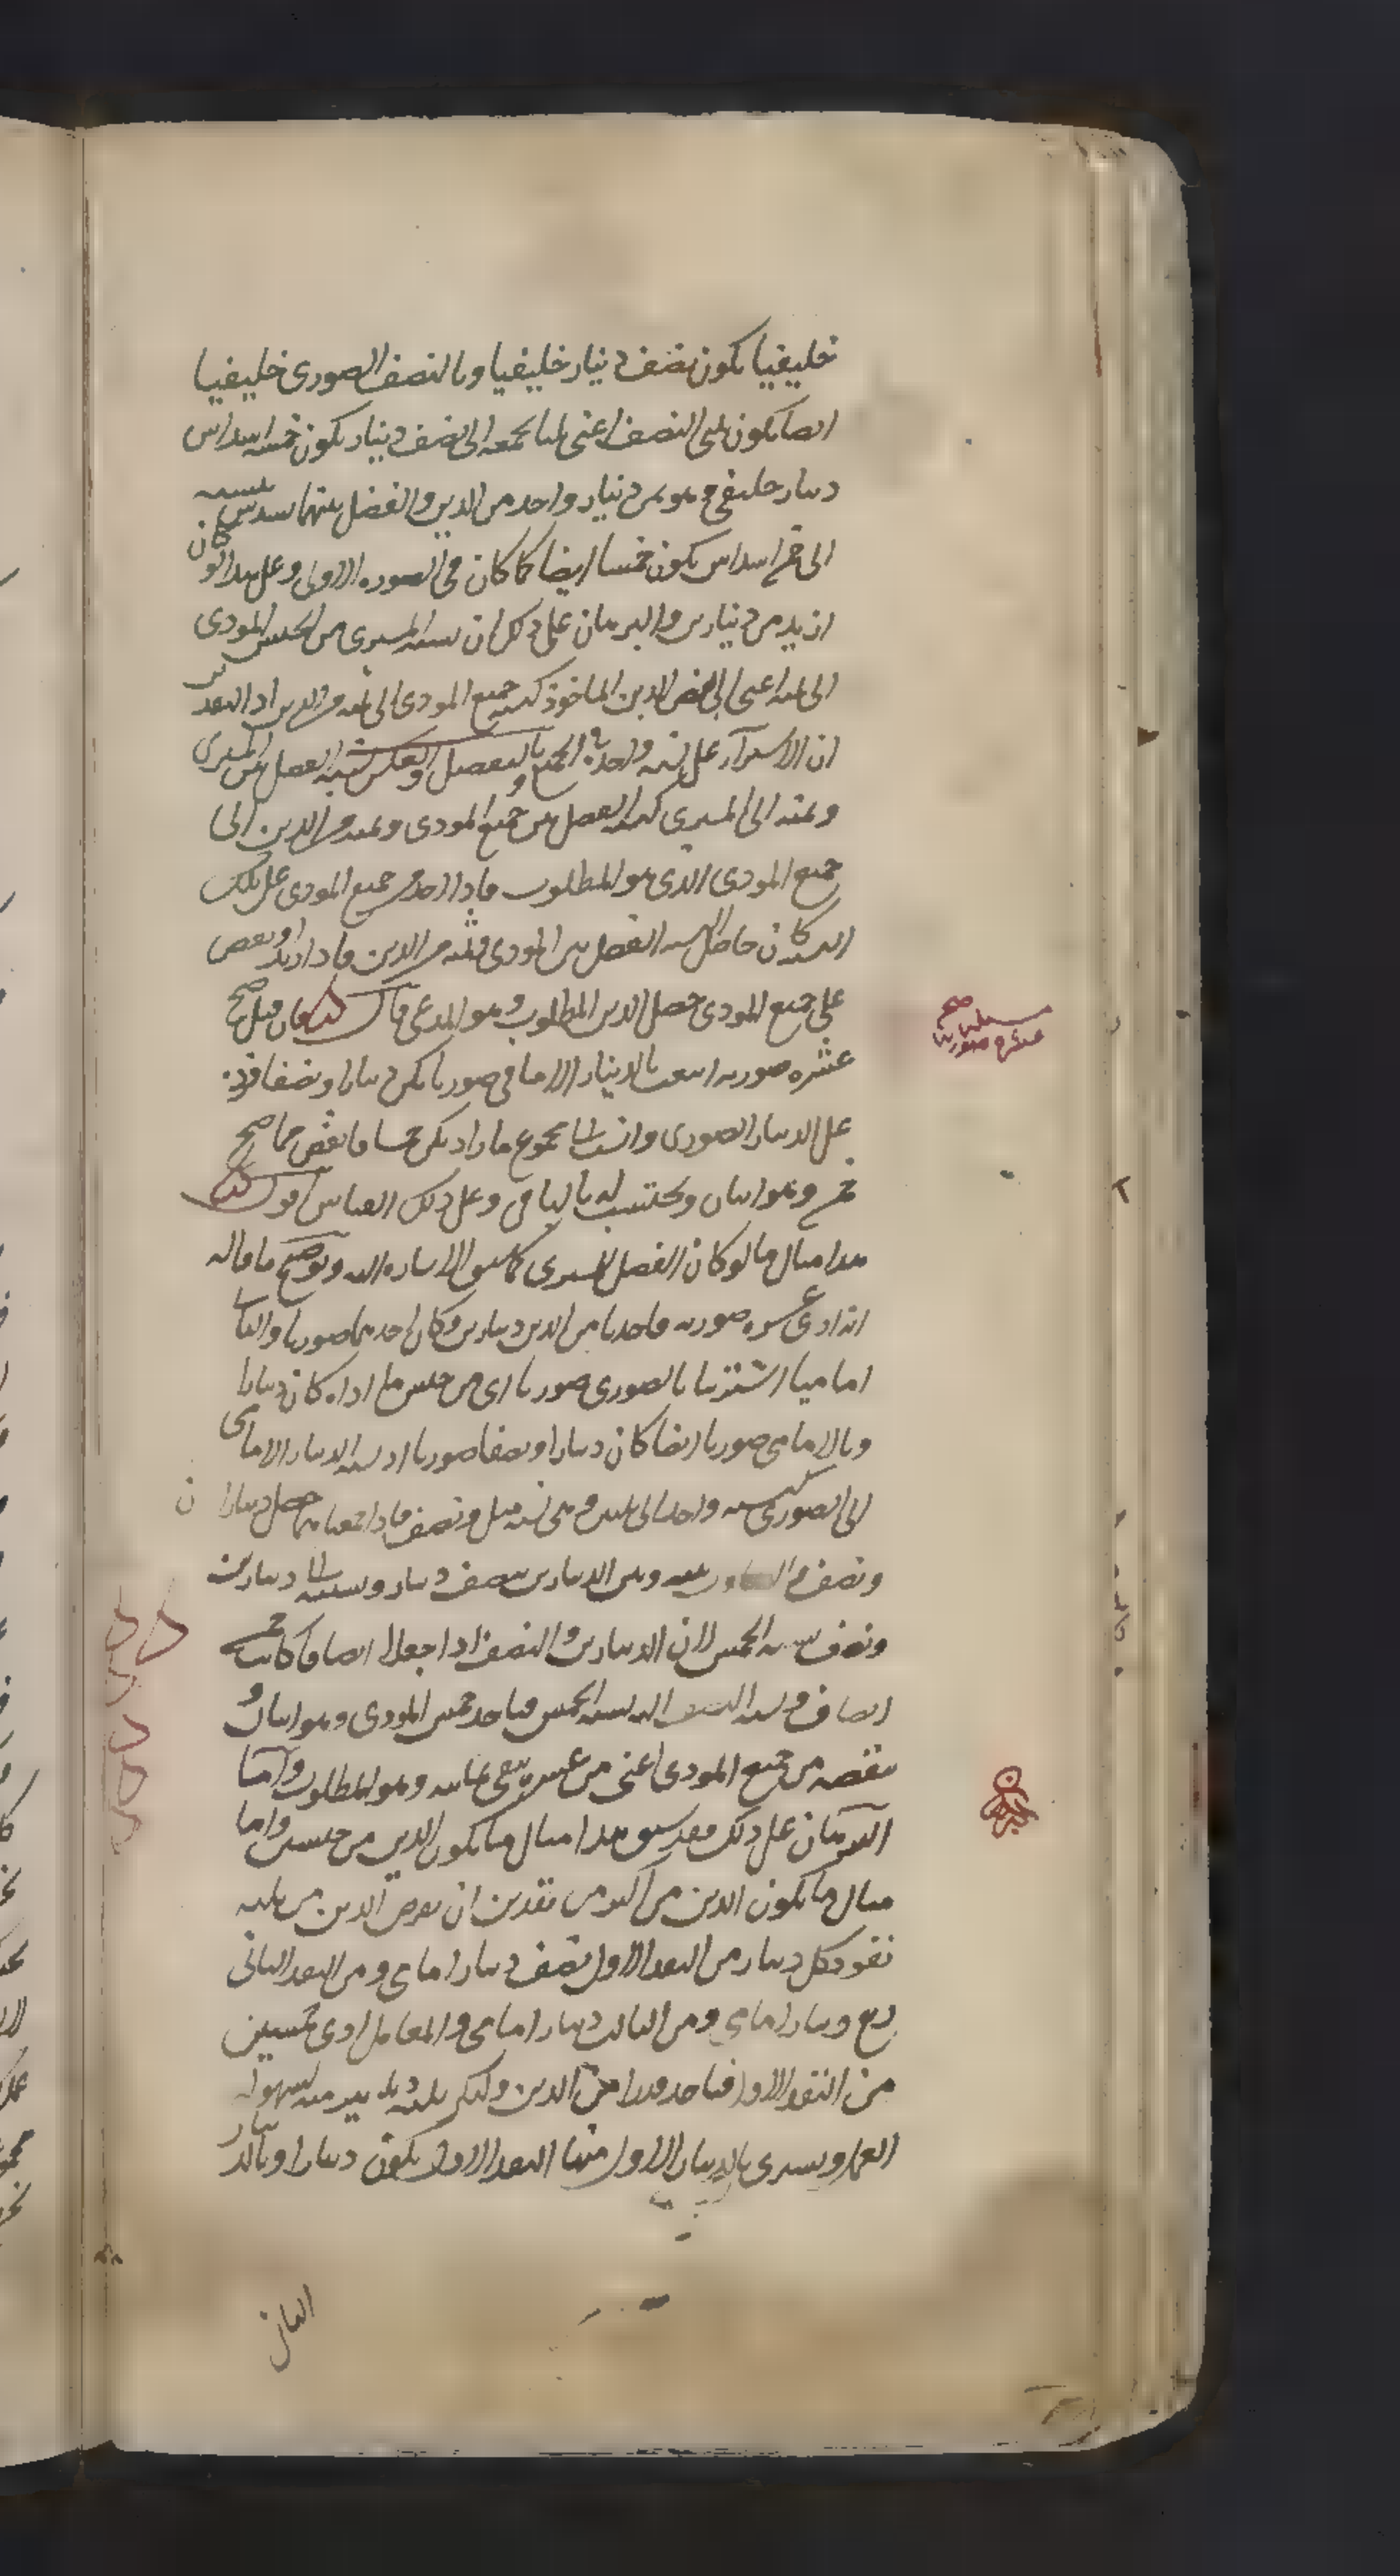 خليفيا يكون نصف دينار خليفيا وبالنصف الصوري خليفيا
ايضا يكون ثلثي النصف اعني ثلثا نجمعه الى نصف دينار يكون خمسة اسداس
دينار خليفي وهو ثمن دينار واحد من الدين والفضل بينهما سدس نسبته
الى خمسة اسداس يكون خمسا ايضا كما كان في الصورة الاولى وعلى هذا لو كان
ازيد من دينارين والبرهان على ذلك ان نسبة المشترى من الجنس المودى
الى ثمنه اعني الى بعض الدين الماخوذ كنسبة جميع المودى الى ثمنه من الدين اذ التقدير
ان الاشتراء على نسبة واحدة الجميع وبالتفصيل والعكس نسبة الفضل بين المشترى
وثمنه الى المشترى كنسبة الفضل بين جميع المودى وثمنه من الدين الى
جميع المودى الذي هو المطلوب فاذا اخذ من جميع المودى على تلك
النسبة كان حاصل النسبة الفضل بين المودى وثمنه من الدين فاذا زيد او نقص
على جميع المودى حصل الدين المطلوب وهو المدعى قال فان قيل صح
عشرة صورية ابتعت بالدينار الامامي صوريا يكن دينارا ونصفا فزد
على الدينار الصوري وانسب مجموع ما زاد يكن خمسا فانقص مما صح
خمسه وهو اثنان ويحتسب له بالباقي وعلى ذلك القياس اقول
هذا مثال ما لو كان الفضل للمشترى كما سبق الاشارة اليه وتوضيح ما قاله
انه ادى عشرة صورية فاخذنا من الدين دينارين وكان احدهما صوريا والثاني
اماميا اشترينا بالصوري صوريا اى من جنس ما اداه كان دينارا
وبالامامي صوريا ايضا كان دينارا ونصفا صوريا اذ نسبة الدينار الامامي
الى الصوري كنسبة واحد الى ثلثين وهى نسبة مثل ونصف فاذا جمعناهما حصل ديناران
ونصف والتفاوت بينه وبين الدينارين بنصف دينار ونسبته الى دينارين
ونصف نسبة الخمس لان الدينارين والنصف اذا جعلا انصافا كانت خمسة
انصاف ونسبة النصف اليه نسبة الخمس فناخذ خمس المودى وهو اثنان و
ننقصه من جميع المودى اعني من عشرة يبقى ثمانية وهو المطلوب واما
البرهان على ذلك فقد سبق هذا مثال ما يكون الدين من جنسين واما
مثال ما يكون الدين من اكثر من نقدين ان نفرض الدين من ثلثة
نقود كل دينار من النقد الاول نصف دينار امامي ومن النقد الثاني
ربع دينار امامي ومن الثالث دينار امامي والمعامل ادى خمسين
من النقد الاول فناخذ قدرا من الدين وليكن ثلثة دنانير منه لسهولة
العمل ونشترى بالدينار الاول منها النقد الاول يكون دينارا وبالدينار
الثاني
مسئلة صح
عشرة صورية